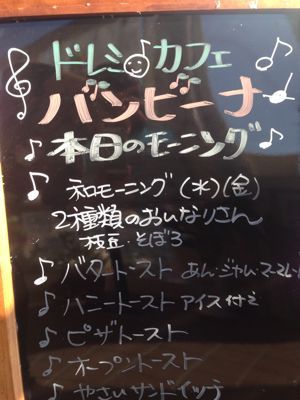 ドレミカフェ
バンビーナ
本日のモーニング
和モーニング (水)(金)
2種類のおいなりさん
枝豆・そぼろ
バタートースト あん・ジャム・マーマレー
ハニートースト アイス付き
ピザトースト
オープントースト
やさいサンドイッチ